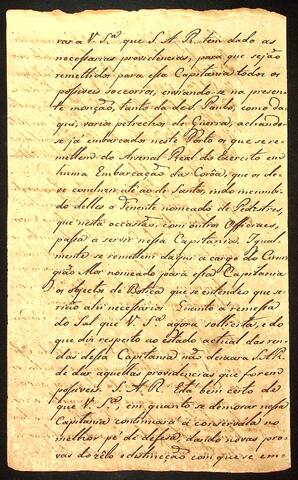 rar a V. S.ª que S. A. R. tem dado as
necessarias providencias, para que sejão
remettidos para essa Capitania todos os
possiveis soccorros, enviando-se na presen-
te monção, tanto da de S. Paulo, como da-
qui, varios petrechos de Guerra, achando-
se já embarcados neste Porto os que se re-
mettem do Arsenal Real do Exercito em
huma Embarcação da Corôa, que os de-
ve conduzir até ao de Santos, indo incumbi-
do delles o Tenente nomeado de Pedestres
que nesta occasião, com outros Officiaes,
passa a servir nessa Capitania. Igual-
mente se remettem daqui a cargo do Cirur-
gião Mor nomeado para essa Capitania
os objectos de Botica que se entendeu que se-
rião ahi necessarios. Quanto á remessa
do Sal que V. S.ª agora sollicita, e do
que diz respeito ao estado actual das ren-
das dessa Capitania não deixará S. A. R.
de dar aquellas providencias que forem
possiveis. S. A. R. Está bem certo de
que V. S.ª, em quanto se demorar nessa
Capitania continuará a conservala no
melhor pé de defesa, dando novas pro-
vas do zelo e distincção com que se em-